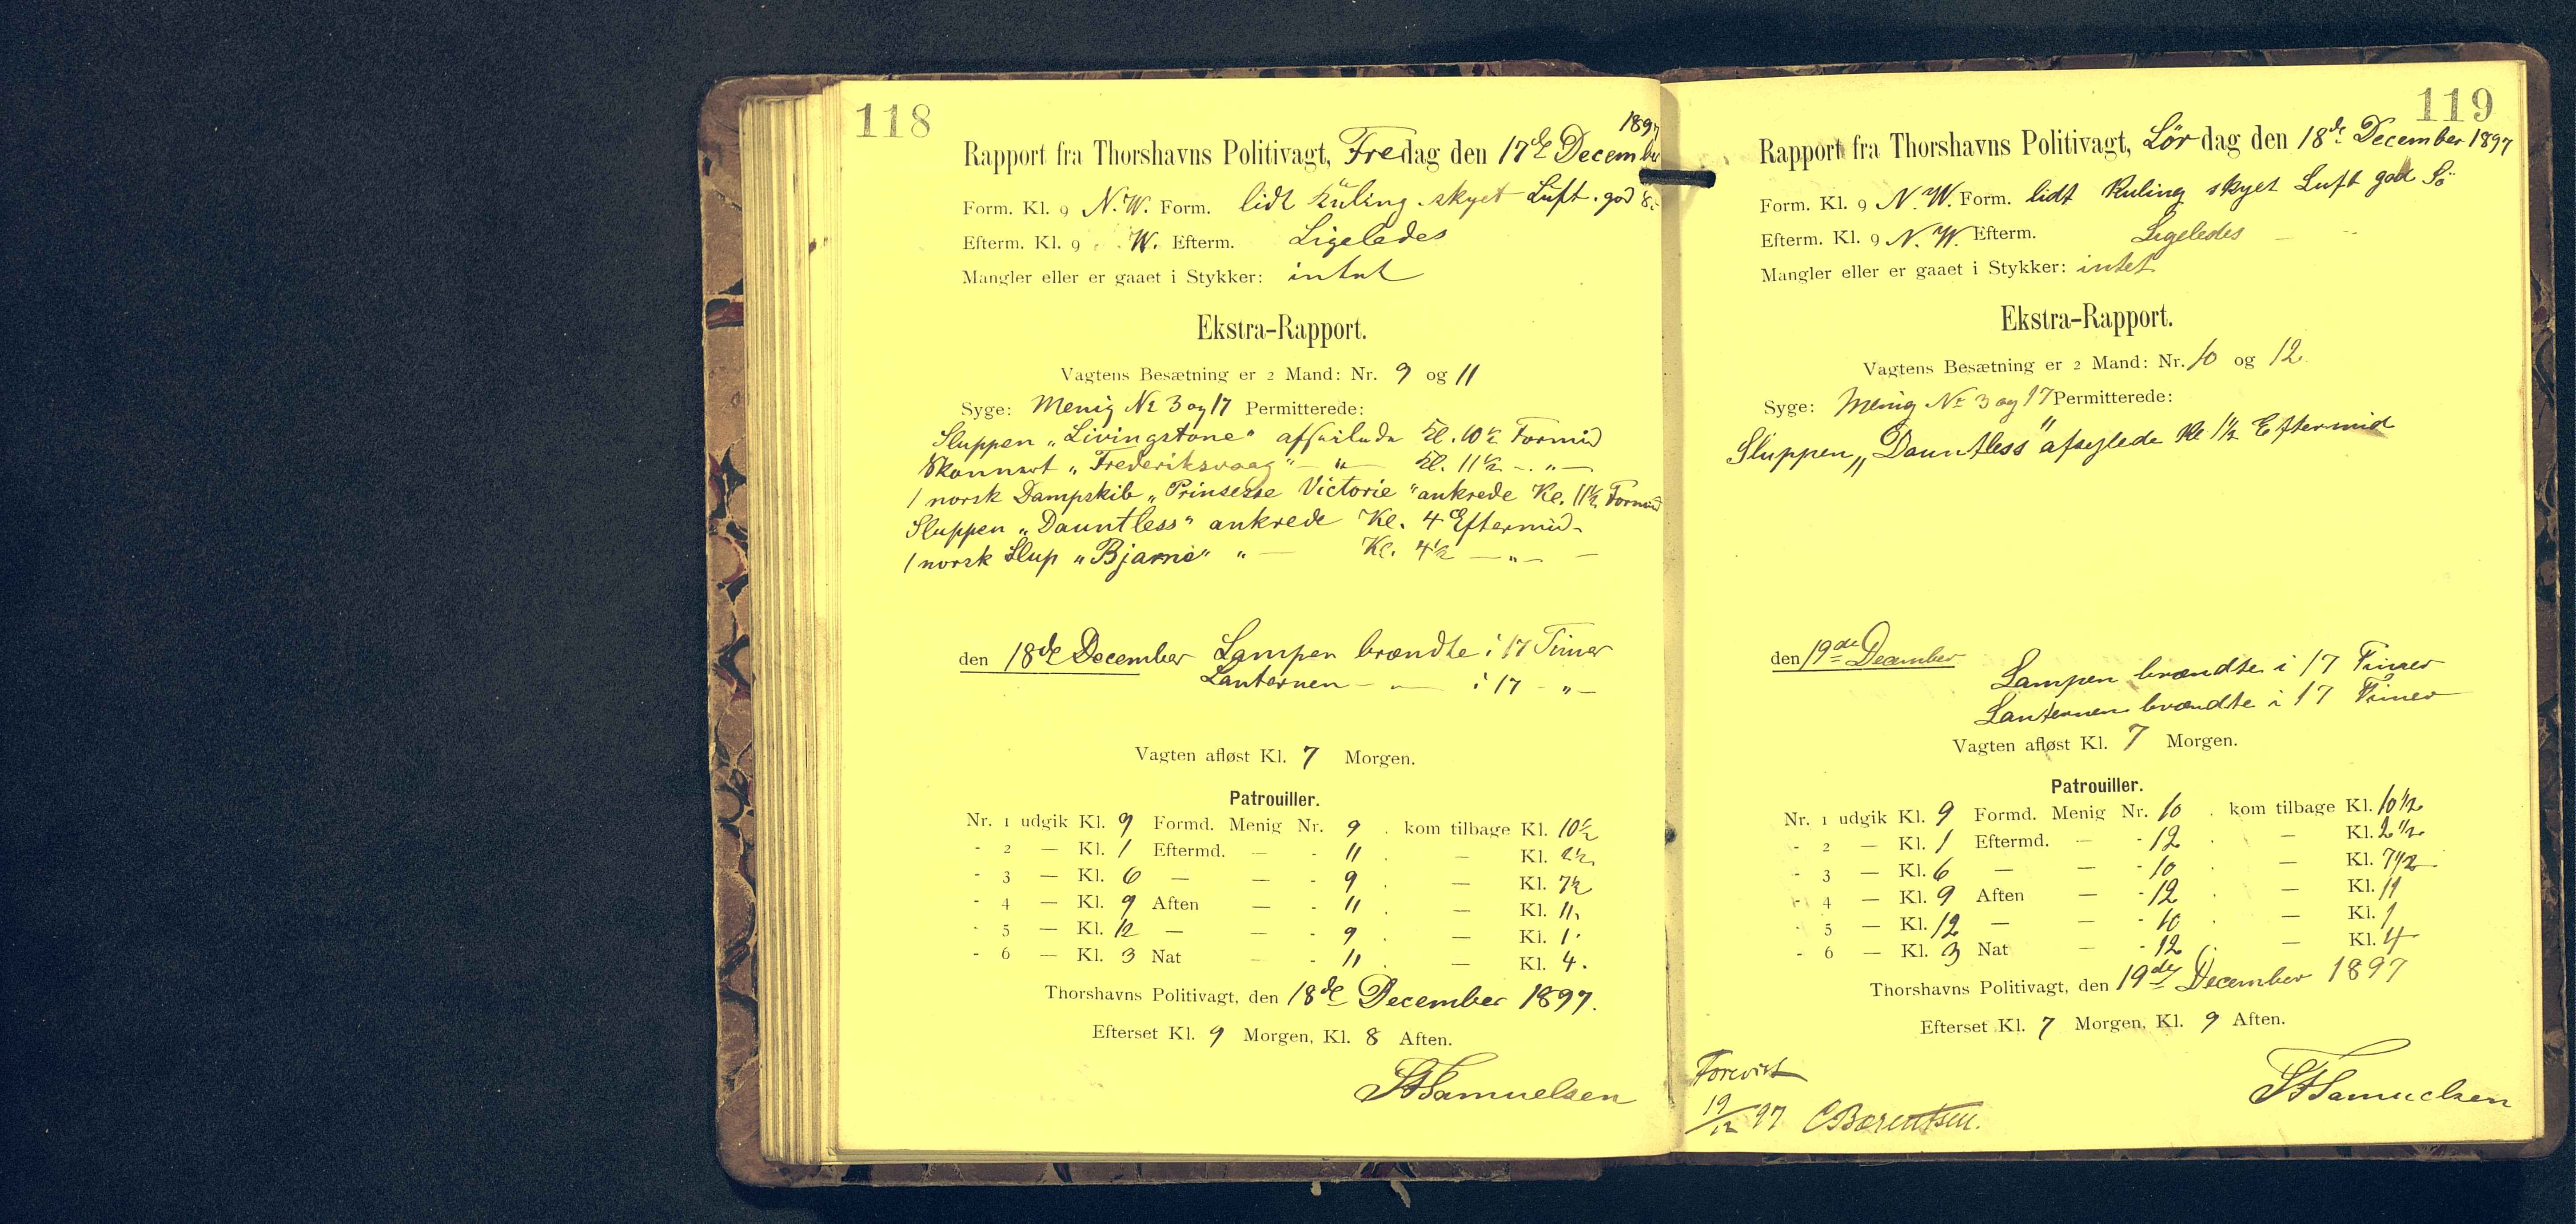 118
1897
Rapport fra Thorshavns Politivagt, Fredag den 17de December
Form. Kl. 9 N.W. Form. lidt Kuling skyet Luft. god S.
Efterm. Kl. 9 W. Efterm. Ligeledes
Mangler eller er gaaet i Stykker: intet
Ekstra-Rapport.
Vagtens Besætning er 2 Mand: Nr. 9 og 11
Syge: Menig No 3 og 17 Permitterede:
Sluppen „Livingstone" afseilede Kl. 10½ Formid
Skonnert „Frederiksvaag" — " — Kl. 11½ — " —
1 norsk Dampskib „Prinsesse Victorie" ankrede Kl. 11½ Formid
Sluppen „Dauntless" ankrede Kl. 4 Eftermid-
1 norsk Slup „Bjarne" " — Kl. 4½ — " — —
den 18de December Lampen brændte i 17 Timer
Lanternen — " — i 17 - " -
Vagten afløst Kl. 7 Morgen.
Patrouiller.
Nr. 1 udgik Kl. 9 Formd. Menig Nr. 9 . kom tilbage Kl. 10½
- 2 — Kl. 1 Eftermd. — - 11 . — Kl. 2½
- 3 — Kl. 6 — — - 9 . — Kl. 7½
- 4 — Kl. 9 Aften — - 11 . — Kl. 11,
- 5 — Kl. 12 — — - 9 . — Kl. 1.
- 6 — Kl. 3 Nat — - 11 . — Kl. 4.
Thorshavns Politivagt, den 18de December 1897.
Efterset Kl. 9 Morgen, Kl. 8 Aften.
Samuelsen
119
Rapport fra Thorshavns Politivagt, Lørdag den 18de December 1897
Form. Kl. 9 N.W. Form. lidt Kuling skyet Luft god Sö
Efterm. Kl. 9 N.W. Efterm. Ligeledes —
Mangler eller er gaaet i Stykker: intet
Ekstra-Rapport.
Vagtens Besætning er 2 Mand: Nr. 10 og 12
Syge: Menig No 3 og 17 Permitterede:
Sluppen „Dauntless" afseglede Kl 1½ Eftermid
den 19de December
Lampen brændte i 17 Timer
Lanternen brændte i 17 Timer
Vagten afløst Kl. 7 Morgen.
Patrouiller.
Nr. 1 udgik Kl. 9 Formd. Menig Nr. 10 . kom tilbage Kl. 10½
- 2 — Kl. 1 Eftermd. — - 12 . — Kl. 2½
- 3 — Kl. 6 — — - 10 — Kl. 7½
- 4 — Kl. 9 Aften — - 12 . — Kl. 11
- 5 — Kl. 12 — — - 10 . — Kl. 1
- 6 — Kl. 3 Nat — - 12 . — Kl. 4
Thorshavns Politivagt, den 19de December 1897
Efterset Kl. 7 Morgen, Kl. 9 Aften.
Samuelsen
Forevist
19/12 97 CBærentsen.